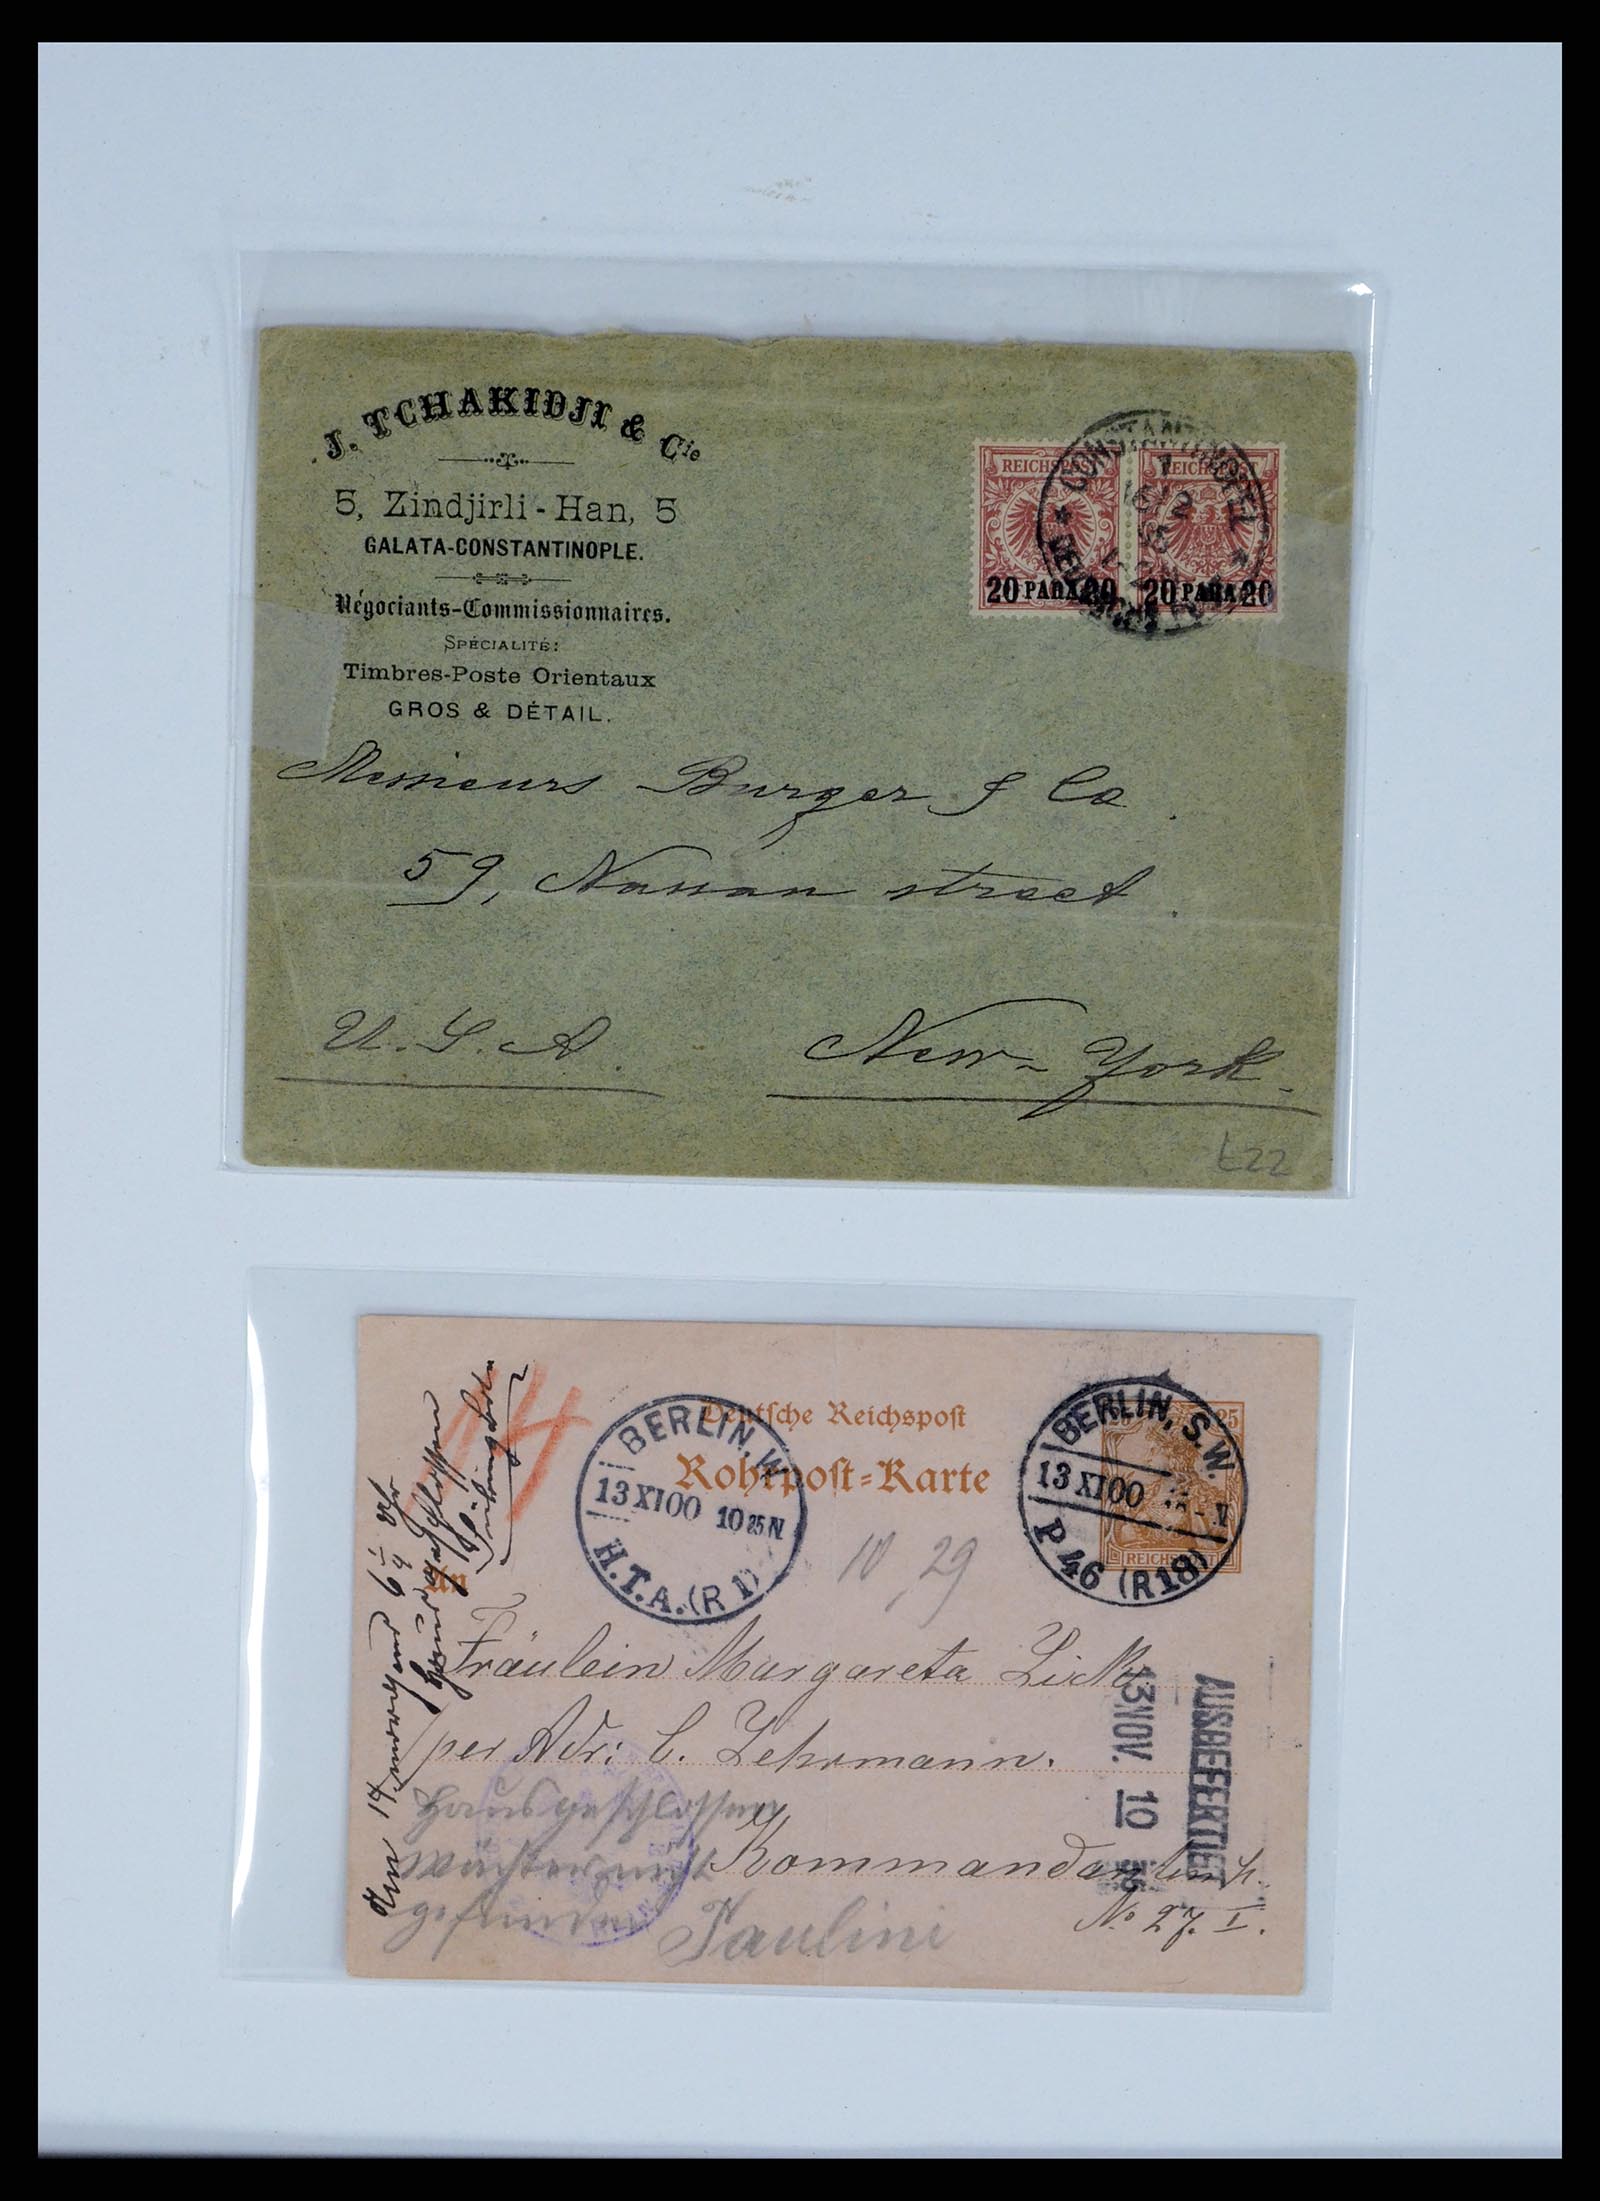 J. TCHAKIDJI & Cie
5, Zindjirli-Han, 5
GALATA-CONSTANTINOPLE.
Négociants-Commissionnaires.
SPÉCIALITÉ:
Timbres-Poste Orientaux
GROS & DÉTAIL.
REICHSPOST
20 PARA 20
REICHSPOST
20 PARA 20
CONSTANTINOPEL
Messieurs Burger & Co.
59, Nassau street.
U.S.A. New-York.
£22
Deutsche Reichspost
Rohrpost-Karte
BERLIN, W.
13 XI 00 10 25 N
H.T.A. (R 1)
BERLIN, S.W.
13 XI 00
P 46 (R18)
25
REICHSPOST
An
10 29
Fräulein Margareta
per Adr: C. Lehrmann.
Haus geschlossen
Wächter nicht
gefunden
Paulini
No 27. I.
AUSGEFERTIGT
13 NOV. 10